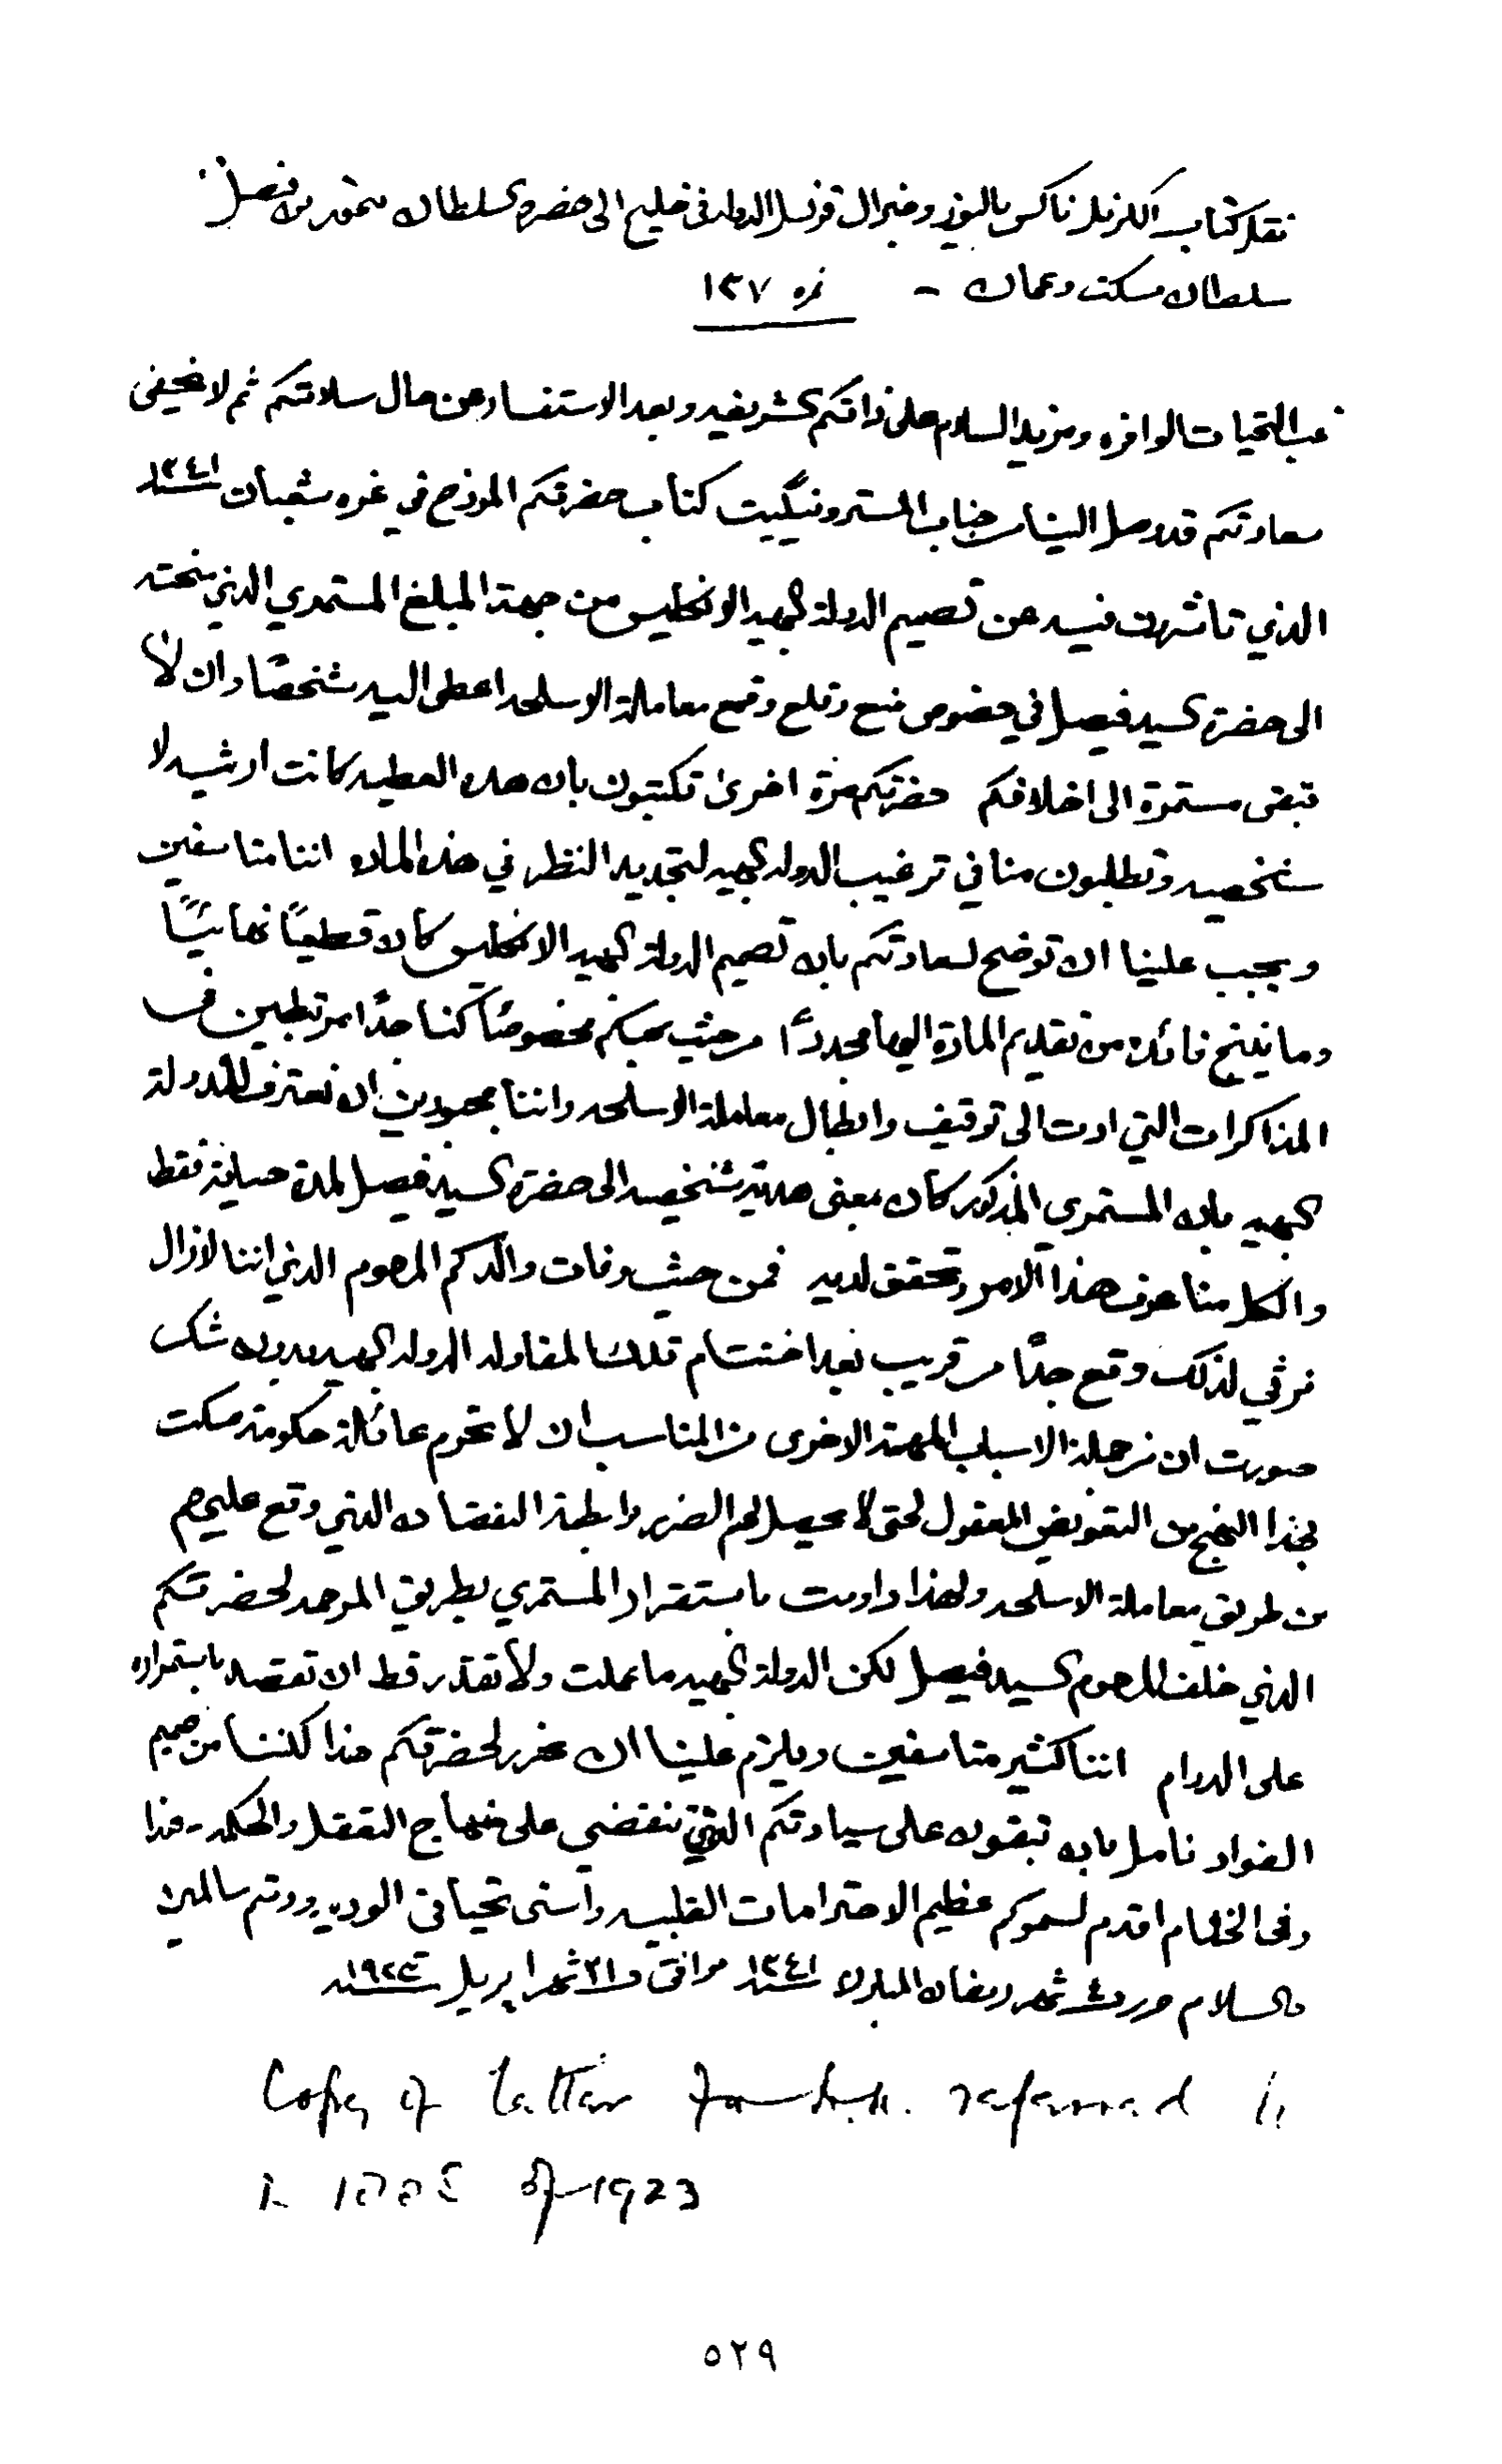 نقل كتاب الكرنل ناكس باليوز وجنرال قونسل الدولة في خليج الى حضرة السلطان تيمور بن فيصل
سلطان مسكت وعمان - نمره ١٣٧
غب التحيات الوافره ومزيد السلام على ذاتكم الشريفه وبعد الاستفسار عن حال سلامتكم ثم لا يخفى
سعادتكم قد وصل الينا من جناب المستر ونگيت كتاب حضرتكم المؤرخ في غره شعبان سنة ١٣٤١
الذي تأشرت فيه عن تصميم الدولة البهيه الانگليس من جهة المبلغ المستمري الذي منحته
الى حضرة السيد فيصل في خصوص منع وقلع وقمع معاملة الاسلحه اعطى اليه شخصًا وان لا
تبقى مستمرة الى اخلافكم حضرتكم مرة اخرى تكتبون بان هذه العطيه كانت ارشيه لا
شخصيه وتطلبون منا في ترغيب الدولة البهيه لتجديد النظر في هذه الماده اننا متاسفين
ويجب علينا ان توضح لسعادتكم بان تصميم الدولة البهيه الانگليس كان قطعيًا نهائيًا
وما ينتج فائده من تقديم المادة اليها مجددًا من حيث محبكم مخصوصًا كنا جدًا مرتبطين في
المذاكرات التي ادت الى توقيف وابطال معاملة الاسلحه واننا مجبورين ان نعترف للدولة
البهيه بان المستمري المذكور كان بمعنى هدية شخصيه الى حضرة السيد فيصل لمدة حياته فقط
والكل منا عرف هذا الامر وتحقق لديه فمن حيث وفات والدكم المرحوم الذي اننا لانزال
نرثي لذلك وقع جدًا من قريب بعد اختتام تلك المقاوله الدولة البهيه بدون شك
صورت ان من جملة الاسباب المهمة الاخرى من المناسب ان لا تحرم عائلة حكومة مسكت
بهذا النهج من التعويض المعقول لحتى لا يحصل لهم الضرر وابطة النقصان الذي وقع عليهم
من طريق معاملة الاسلحه ولهذا داومت باستقرار المستمري بطريق المرحمه لحضرتكم
الذي خلف المرحوم السيد فيصل لكن الدولة البهيه ما عملت ولا تقدر قط ان تقصد باستمراره
على الدوام اننا كثير متاسفين ويلزم علينا ان نحرر لحضرتكم هذا لكننا من صميم
الفواد نامل بان تبقون على سيادتكم الذي تنقضي على منهاج التعقل والحكمه - هذا
وفي الختام اقدم لسموكم عظيم الاحترامات القلبيه واسنى تحياتي الوديه ودمتم سالمين
والسلام حرر في ٤ شهر رمضان المبارك سنة ١٣٤١ موافق ٢١ شهر اپريل سنة ١٩٢٣
Copy of letter referred
of 1923
٥٢٩